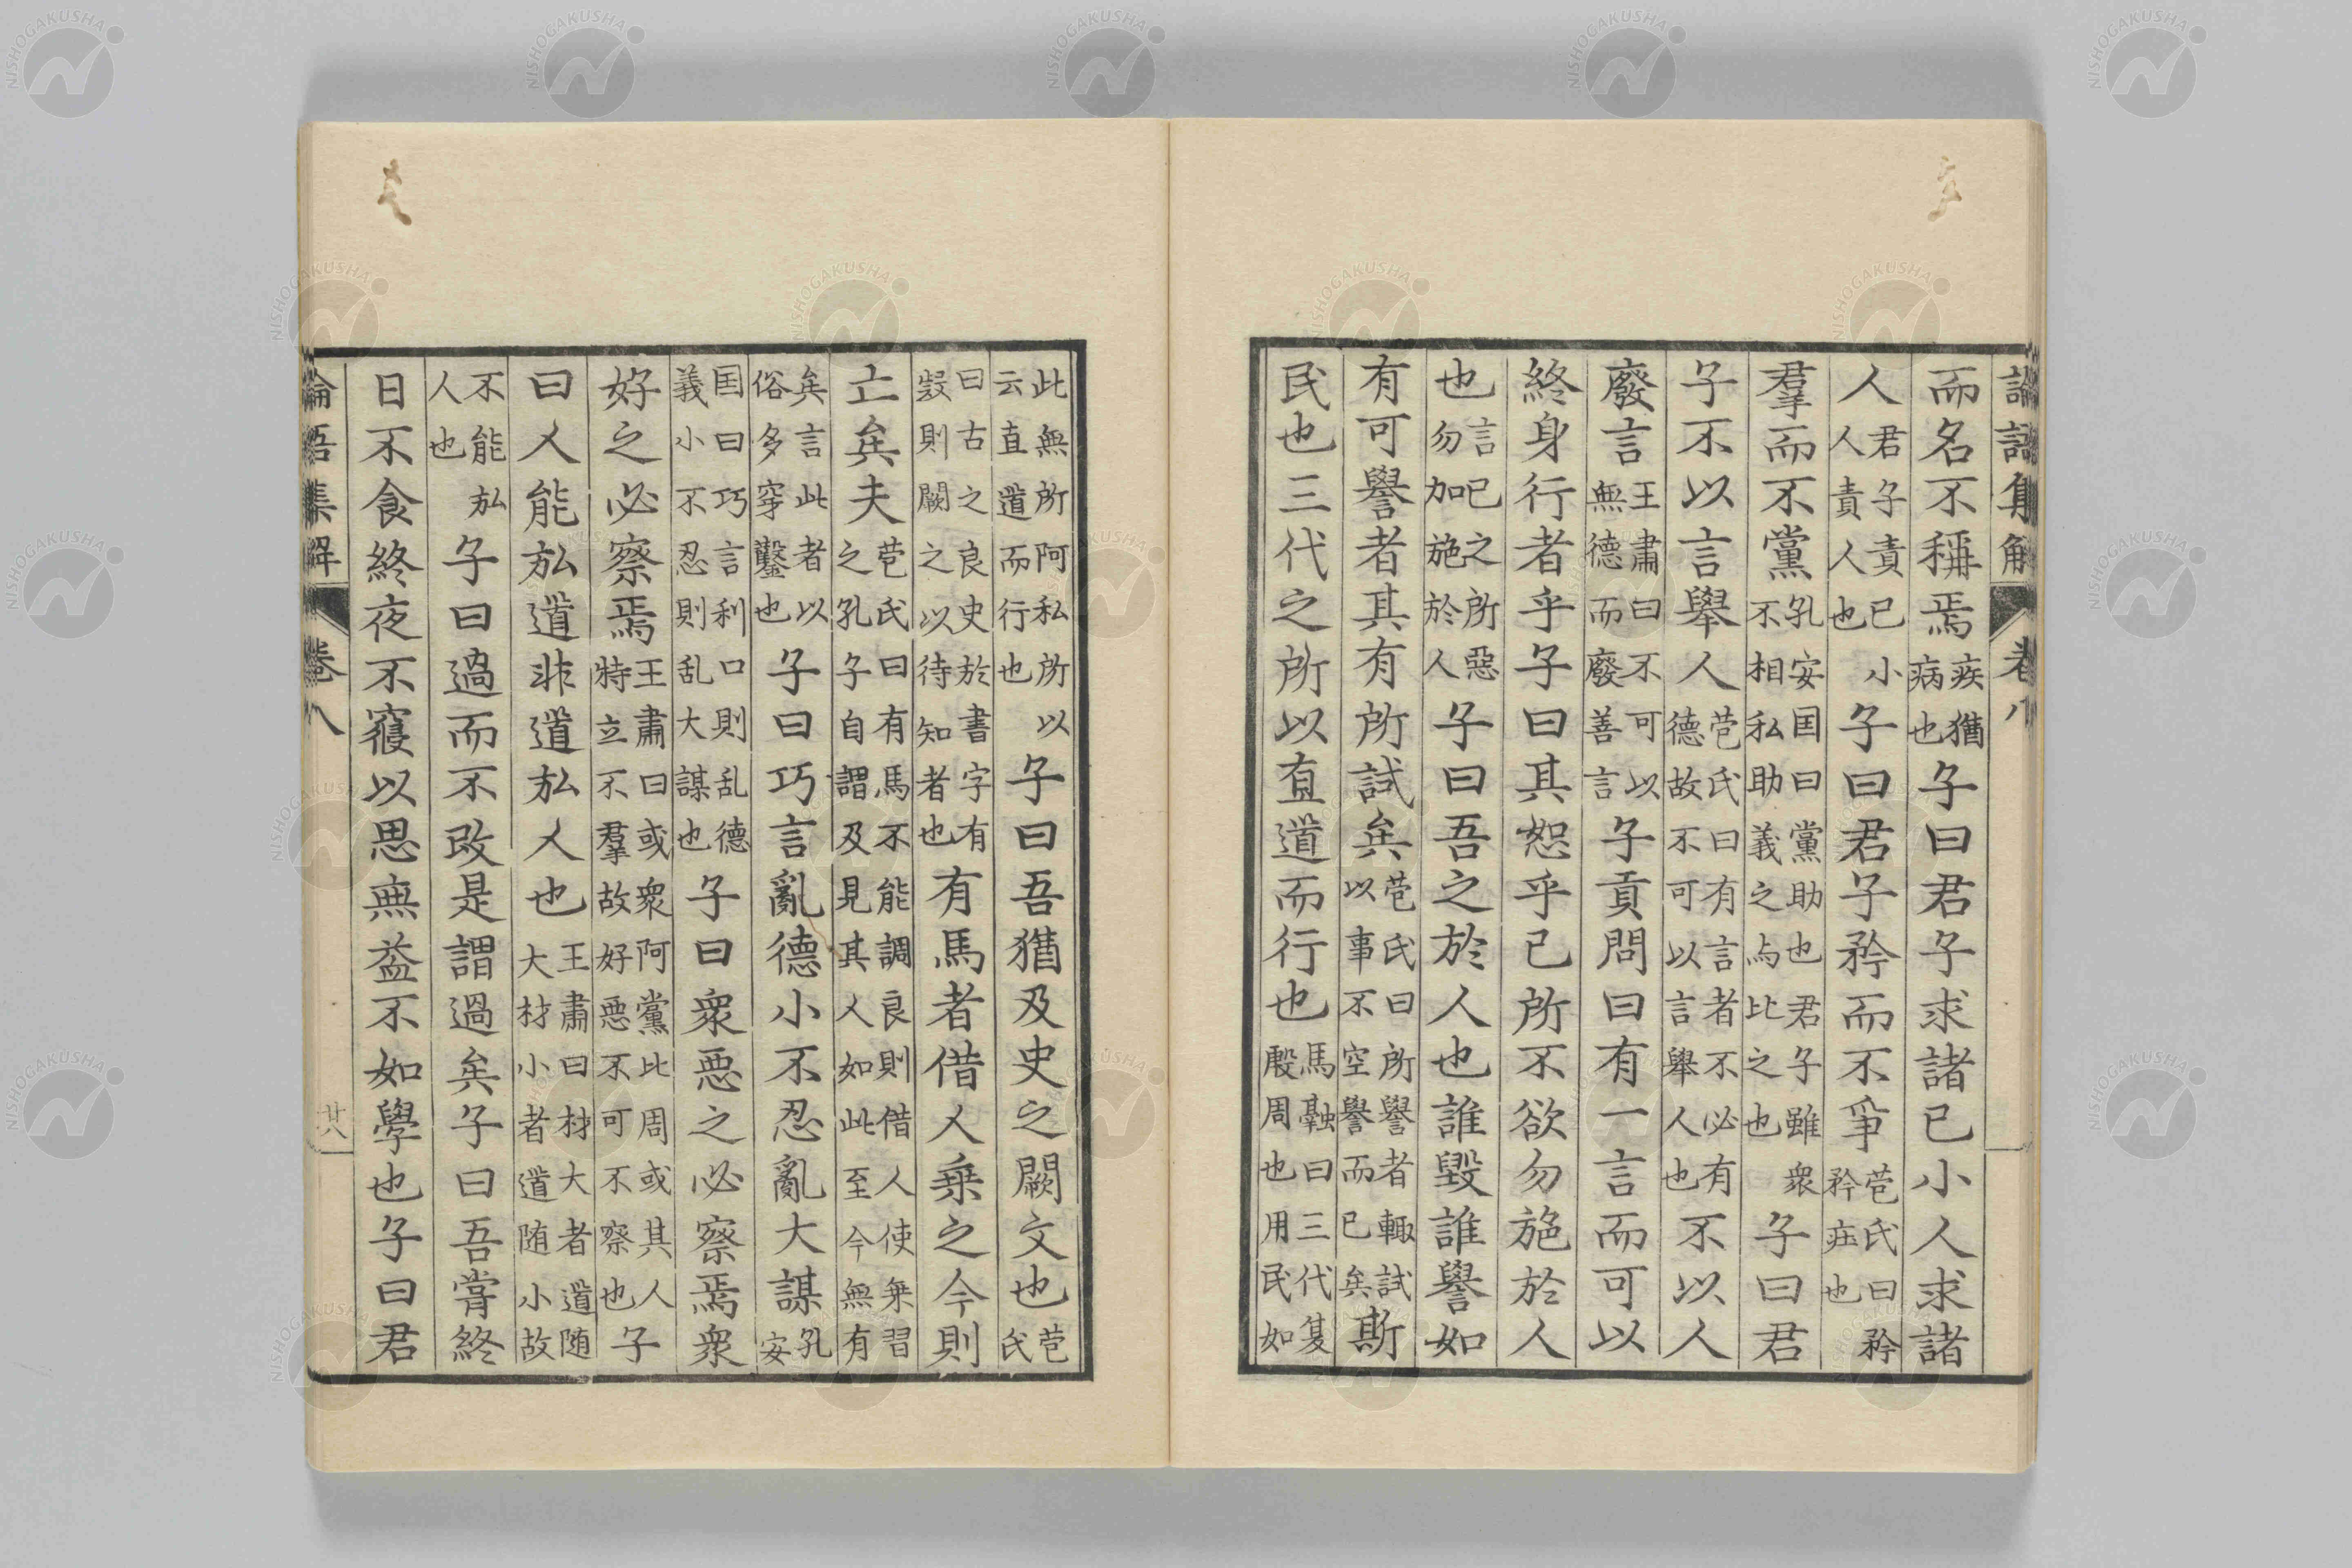 論語集解 卷八
而名不稱焉疾猶病也子曰君子求諸己小人求諸
人君子責己小人責人也子曰君子矜而不爭苞氏曰矜矜庄也
羣而不黨孔安囯曰黨助也君子雖衆不相私助義之与比之也子曰君
子不以言舉人苞氏曰有言者不必有德故不可以言舉人也不以人
廢言王肅曰不可以無德而廢善言子貢問曰有一言而可以
終身行者乎子曰其恕乎己所不欲勿施於人
也言己之所惡勿加施於人子曰吾之於人也誰毀誰譽如
有可譽者其有所試矣苞氏曰所譽者輙試以事不空譽而已矣斯
民也三代之所以直道而行也馬融曰三代夏殷周也用民如
此無所阿私所以云直道而行也子曰吾猶及史之闕文也苞氏
曰古之良史於書字有疑則闕之以待知者也有馬者借人乗之今則
亡矣夫苞氏曰有馬不能調良則借人使乗習之孔子自謂及見其人如此至今無有
矣言此者以俗多穿鑿也子曰巧言亂德小不忍亂大謀孔安
囯曰巧言利口則乱德義小不忍則乱大謀也子曰衆惡之必察焉衆
好之必察焉王肅曰或衆阿黨比周或其人特立不羣故好惡不可不察也子
曰人能弘道非道弘人也王肅曰材大者道随大材小者道随小故
不能弘人也子曰過而不改是謂過矣子曰吾嘗終
日不食終夜不寢以思無益不如學也子曰君
論語集解 卷八 廿八